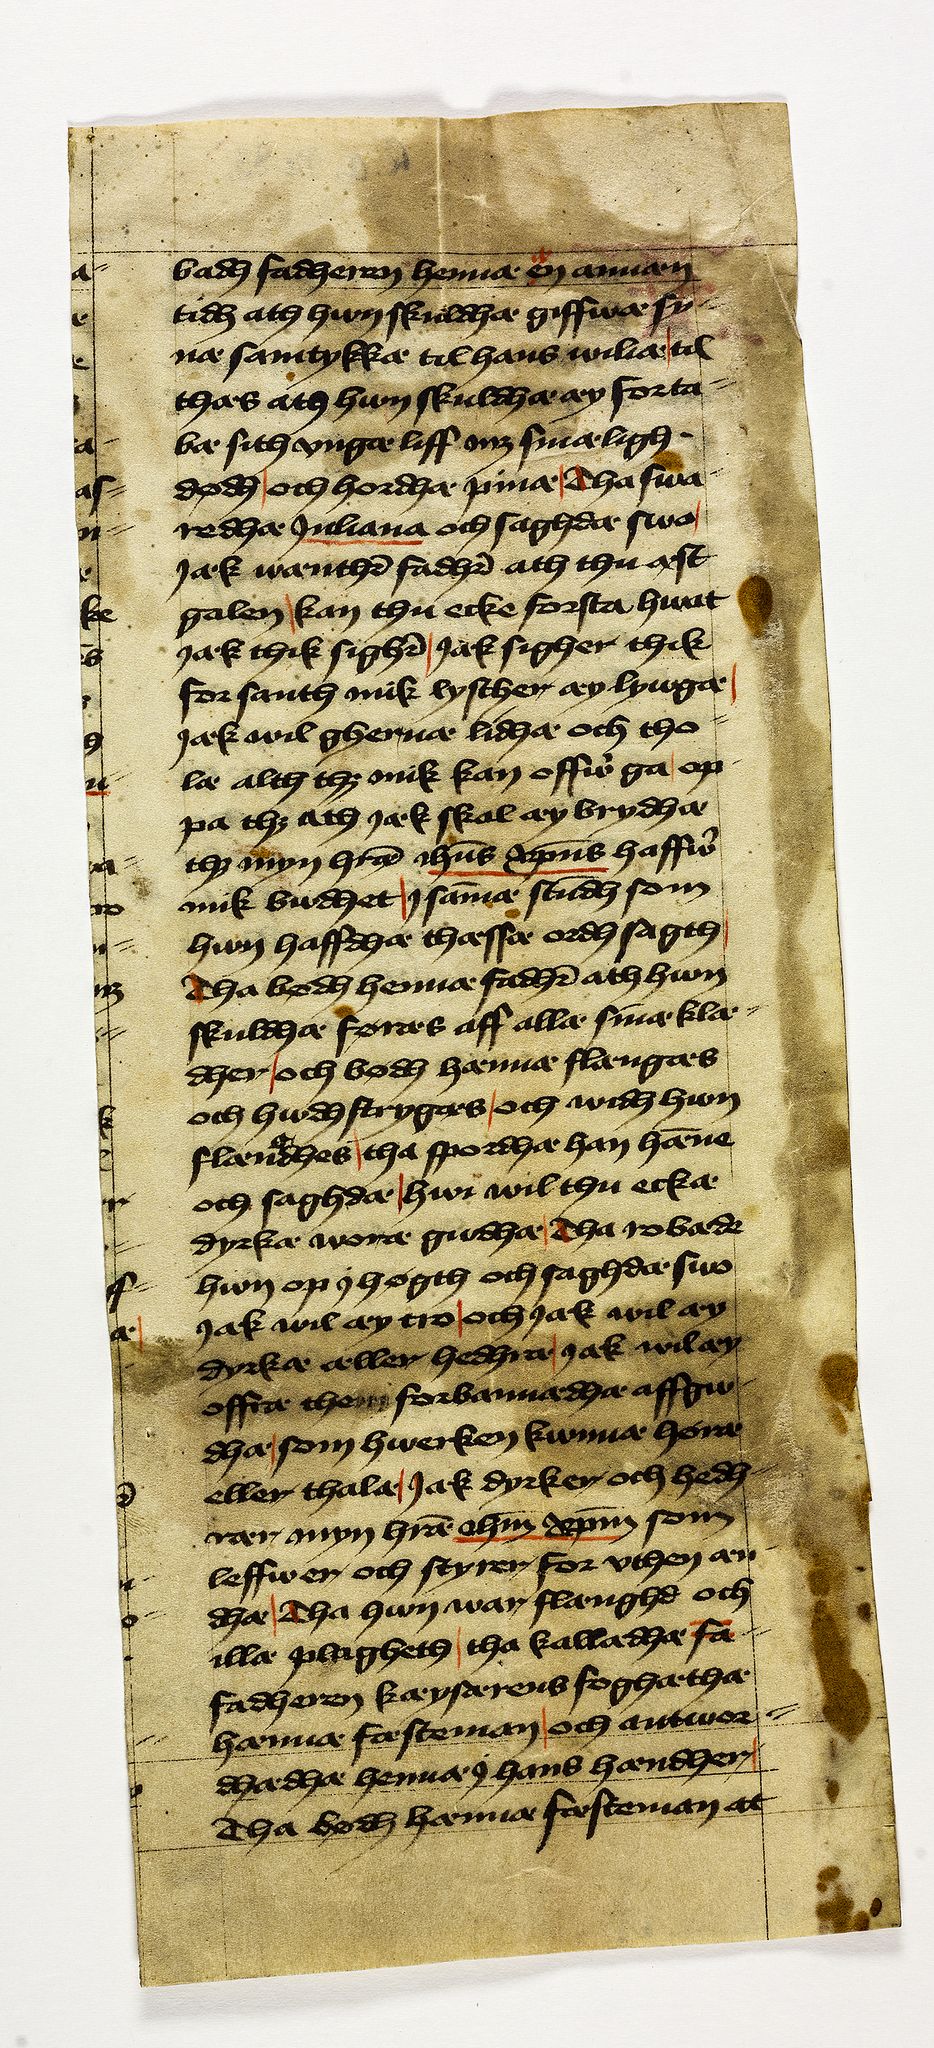 badh fadheren hennæ en annæn
tidh ath hwn skuldhæ giffwæ sy-
næ samtykkæ til hans wiliæ til
thæs ath hwn skuldhæ æy forta-
bæ sith vngæ liff mz smæligh
dødh och hordhæ pinæ Tha swa-
redhæ Juliana och saghdæ swo
Jæk wænthr̄ fadhr̄ ath thu æst
galen kan thu ecke forsta hwat
jæk thik sighr̄ Jæk sigher thik
for santh mik lysther æy lywgæ
Jæk wil ghernæ lidhæ och tho-
læ alth thz mik kan offw̄ ga op
pa thz ath jæk skal æy brydhæ
thz myn hrǣ ihūs xpūs haffw̄
mik budhet J sām̄æ stūdh som
hwn haffdhæ thæssæ ordh sagth
Tha bødh hennæ fadhr̄ ath hwn
skuldhæ føræs aff allæ sinæ klæ-
dher och bødh hænnæ flængæs
och hwdhstrygæs och widh hwn
flængdhes tha spordhæ han hǣne
och saghdæ hwi wil thu eckæ
dyrkæ woræ gudhæ Tha robæde
hwn op j høgth och saghdæ swo
Jæk wil æy tro och Jæk wil æy
dyrkæ æller hedhræ Jæk wil æy
offræ them forbannædhæ affgu-
dhæ som hwerken kunnæ høræ
eller thalæ Jæk dyrker och hedh-
rær myn hrǣ ihm̄ xpm̄ som
leffwer och styrer for vthen æn-
dhæ Tha hwn war flænghd och
illæ plagheth tha kalladhæ fa-
fadheren kæysærens foghæthæ
hænnæ fæsteman och antwor-
dhædhæ hennæ j hans hændher
Tha bødh hænnæ fæsteman at